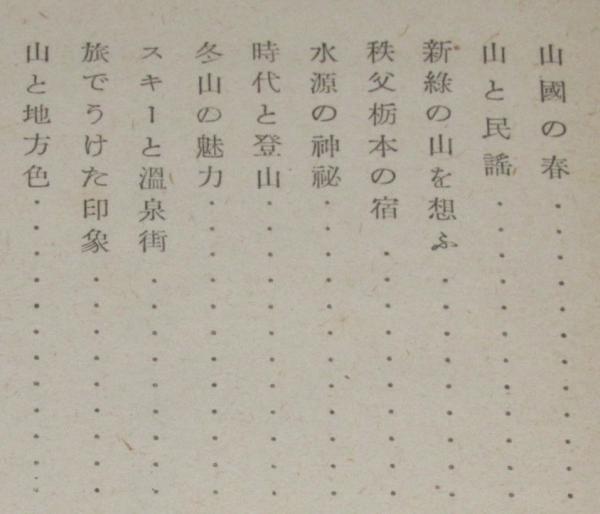 山國の春
山と民謠
新綠の山を想ふ
秩父栃本の宿
水源の神祕
時代と登山
冬山の魅力
スキーと溫泉街
旅でうけた印象
山と地方色